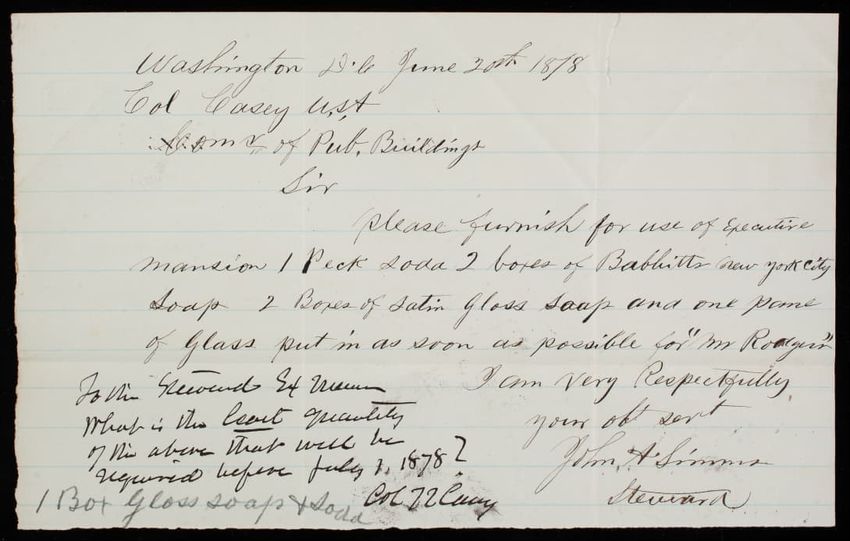 Washington D.C June 20th 1878
Col Casey U.S.A
Comr of Pub. Buildings
Sir
please furnish for use of Executive
mansion 1 Peck soda 2 boxes of Babbitts new york city
soap 2 Boxes of Satin Gloss soap and one pane
of Glass put in as soon as possible for "Mr Rodgers"
I am Very Respectfully
your obt servt
John A Simms
Steward
To the Steward Ex Mansion
What is the least quantity
of the above that will be
required before July 1, 1878?
Col Casey
1 Box Gloss soap & Soda